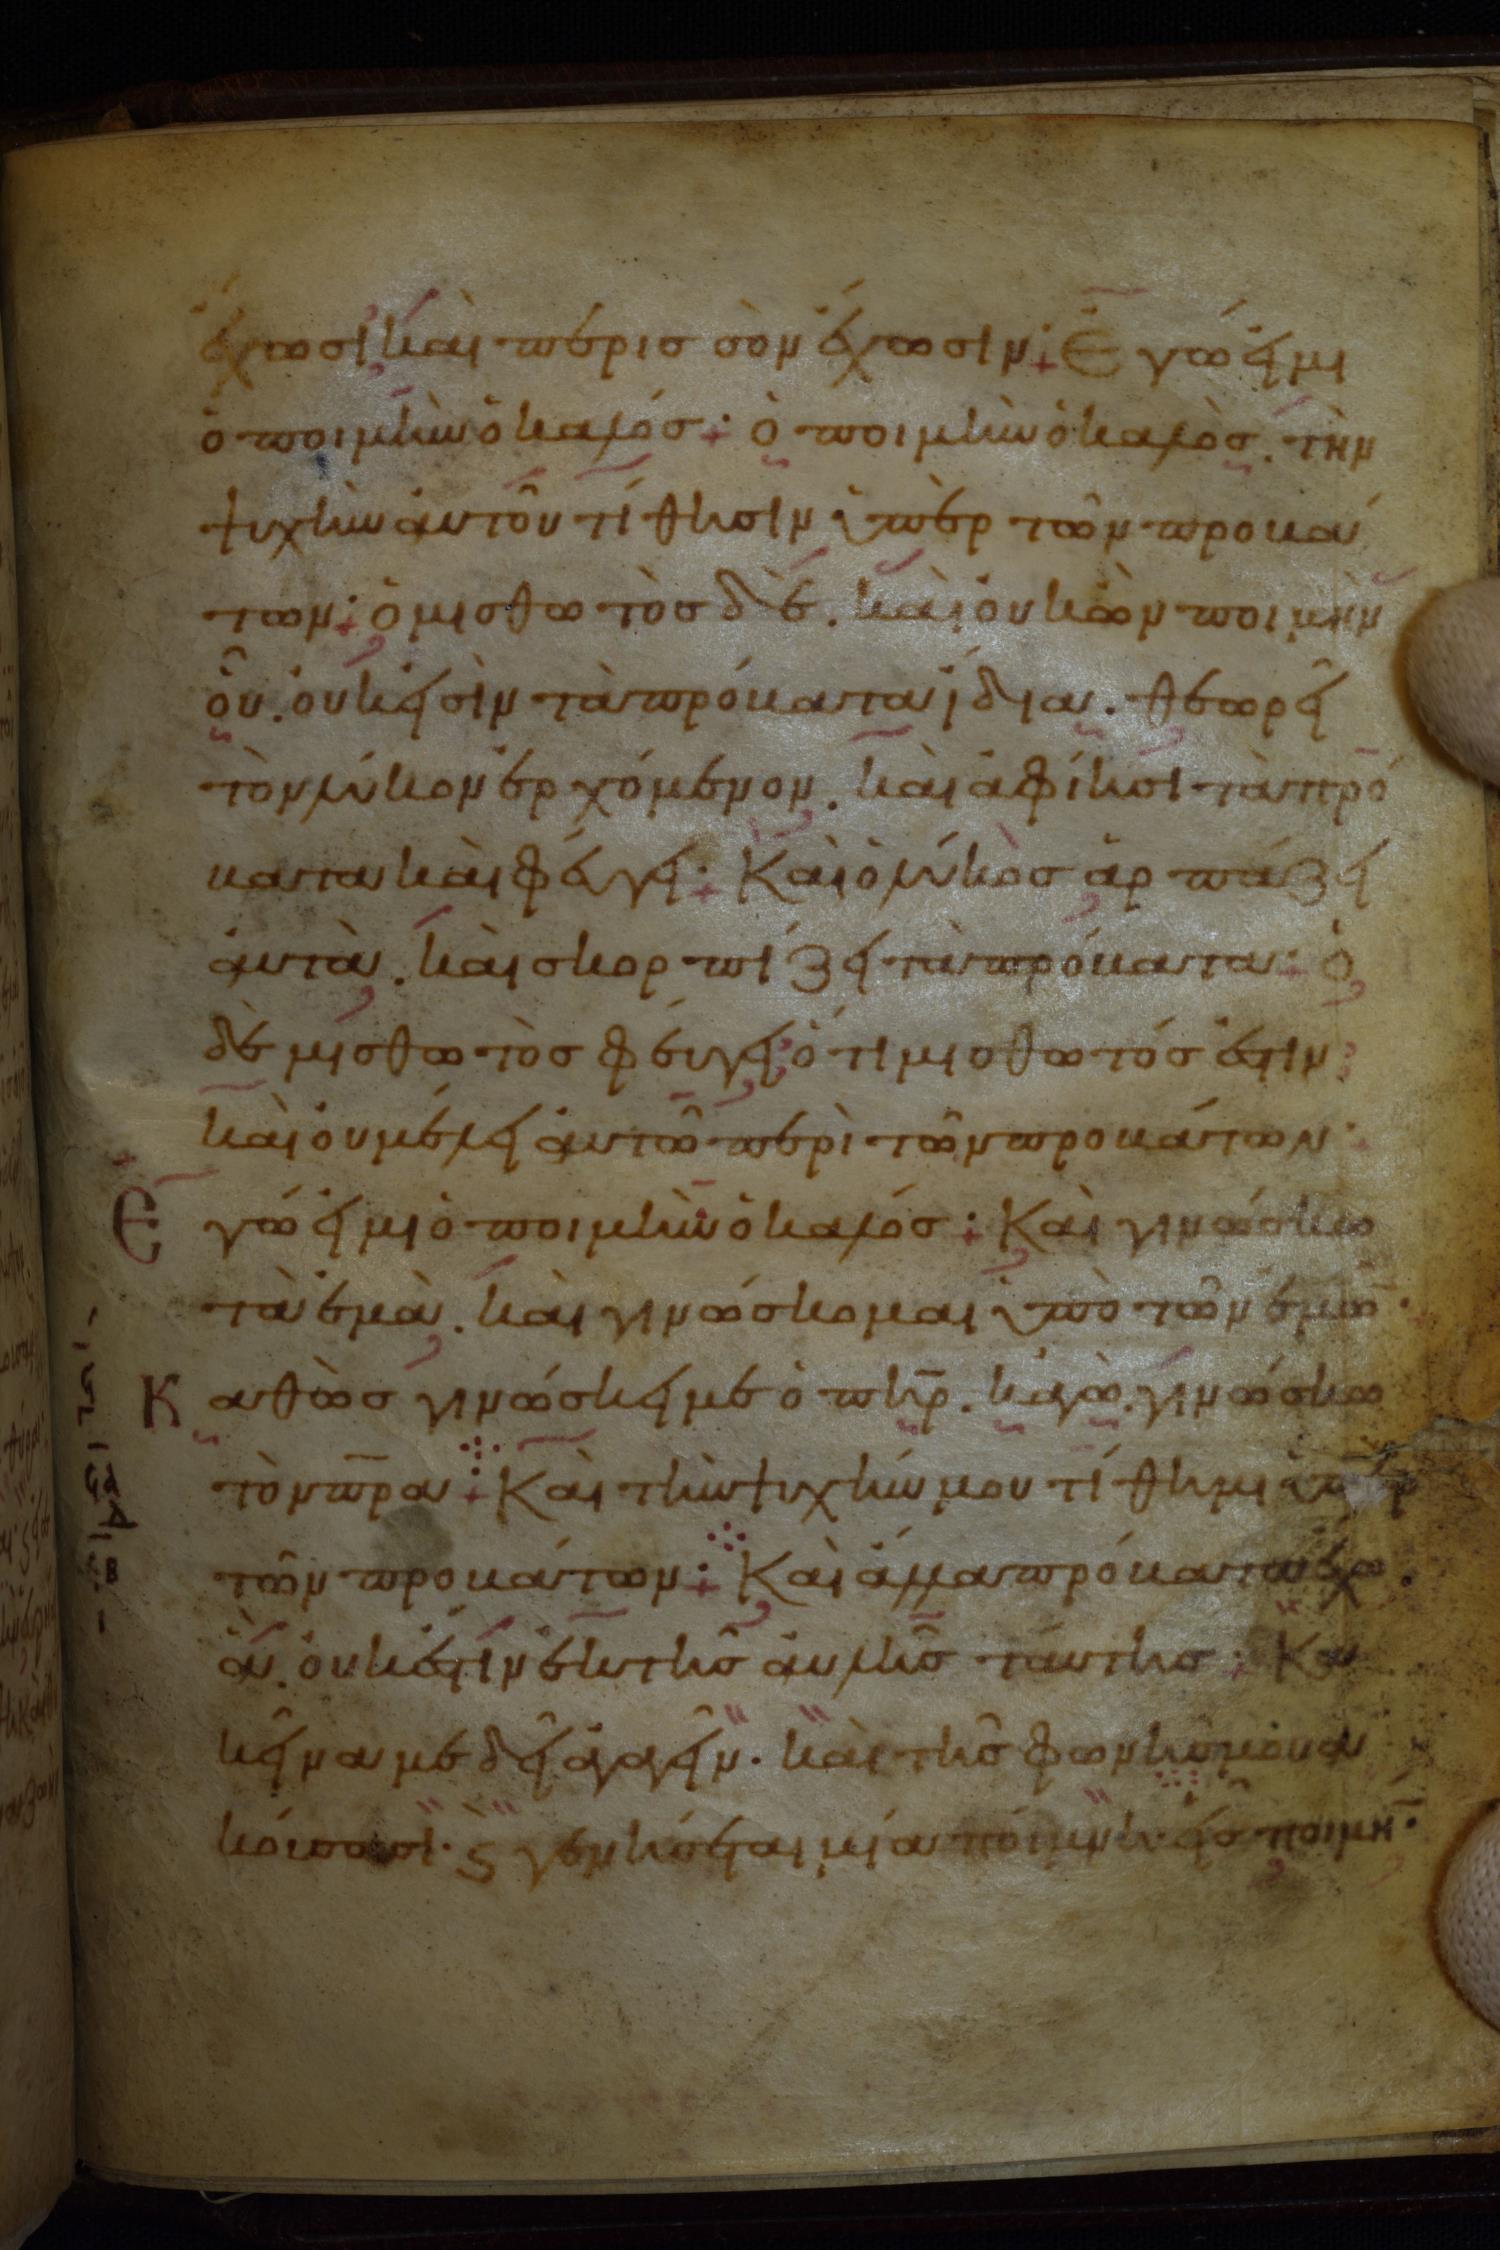 ἔχωσι καὶ περισσὸν ἔχωσιν· Ἐγώ εἰμι
ὁ ποιμὴν ὁ καλός· ὁ ποιμὴν ὁ καλὸς. τὴν
ψυχὴν αὐτοῦ τίθησιν ὑπὲρ τῶν προβά
των· ὁ μισθωτὸσ δὲ. καὶ οὐκ ὢν ποιμὴν
οὗ. οὐκ εἰσὶν τὰ πρόβατα ἴδια. θεωρεῖ
τὸν λύκον ἐρχόμενον. καὶ ἀφίησι τὰ πρό
βατα καὶ φέυγει· Καὶ ὁ λύκοσ ἁρπάζει
αὐτὰ. καὶ σκορπίζει τὰ πρόβατα· ὁ
δὲ μισθωτὸσ φέυγει ὅτι μισθωτόσ ἐστιν
καὶ οὐ μέλει αὐτῶ περὶ τῶν προβάτων·
Ἐγώ εἰμι ὁ ποιμὴν ὁ καλόσ· Καὶ γινώσκω
τὰ ἐμὰ. καὶ γινώσκομαι ὑπὸ τῶν ἐμῶ̄·
Καθὼσ γινώσκει με ὁ πη̄ρ. κἀγὼ. γινώσκω
τὸν πρ̄α· Καὶ τὴν ψυχήν μου τίθημι ὑπὲρ
τῶν προβάτων· Καὶ ἄλλα πρόβατα ἔχω.
ἃ. οὐκ ἔστιν ἐκ τῆσ αὐλῆσ ταύτησ· Κα
κεῖνα με δεῖ ἀγαγεῖν. καὶ τῆσ φωνῆσ μου ἀ
κούσουσι. ϗ γενήσεται μία ποίμνη. εἷσ ποιμή̄·